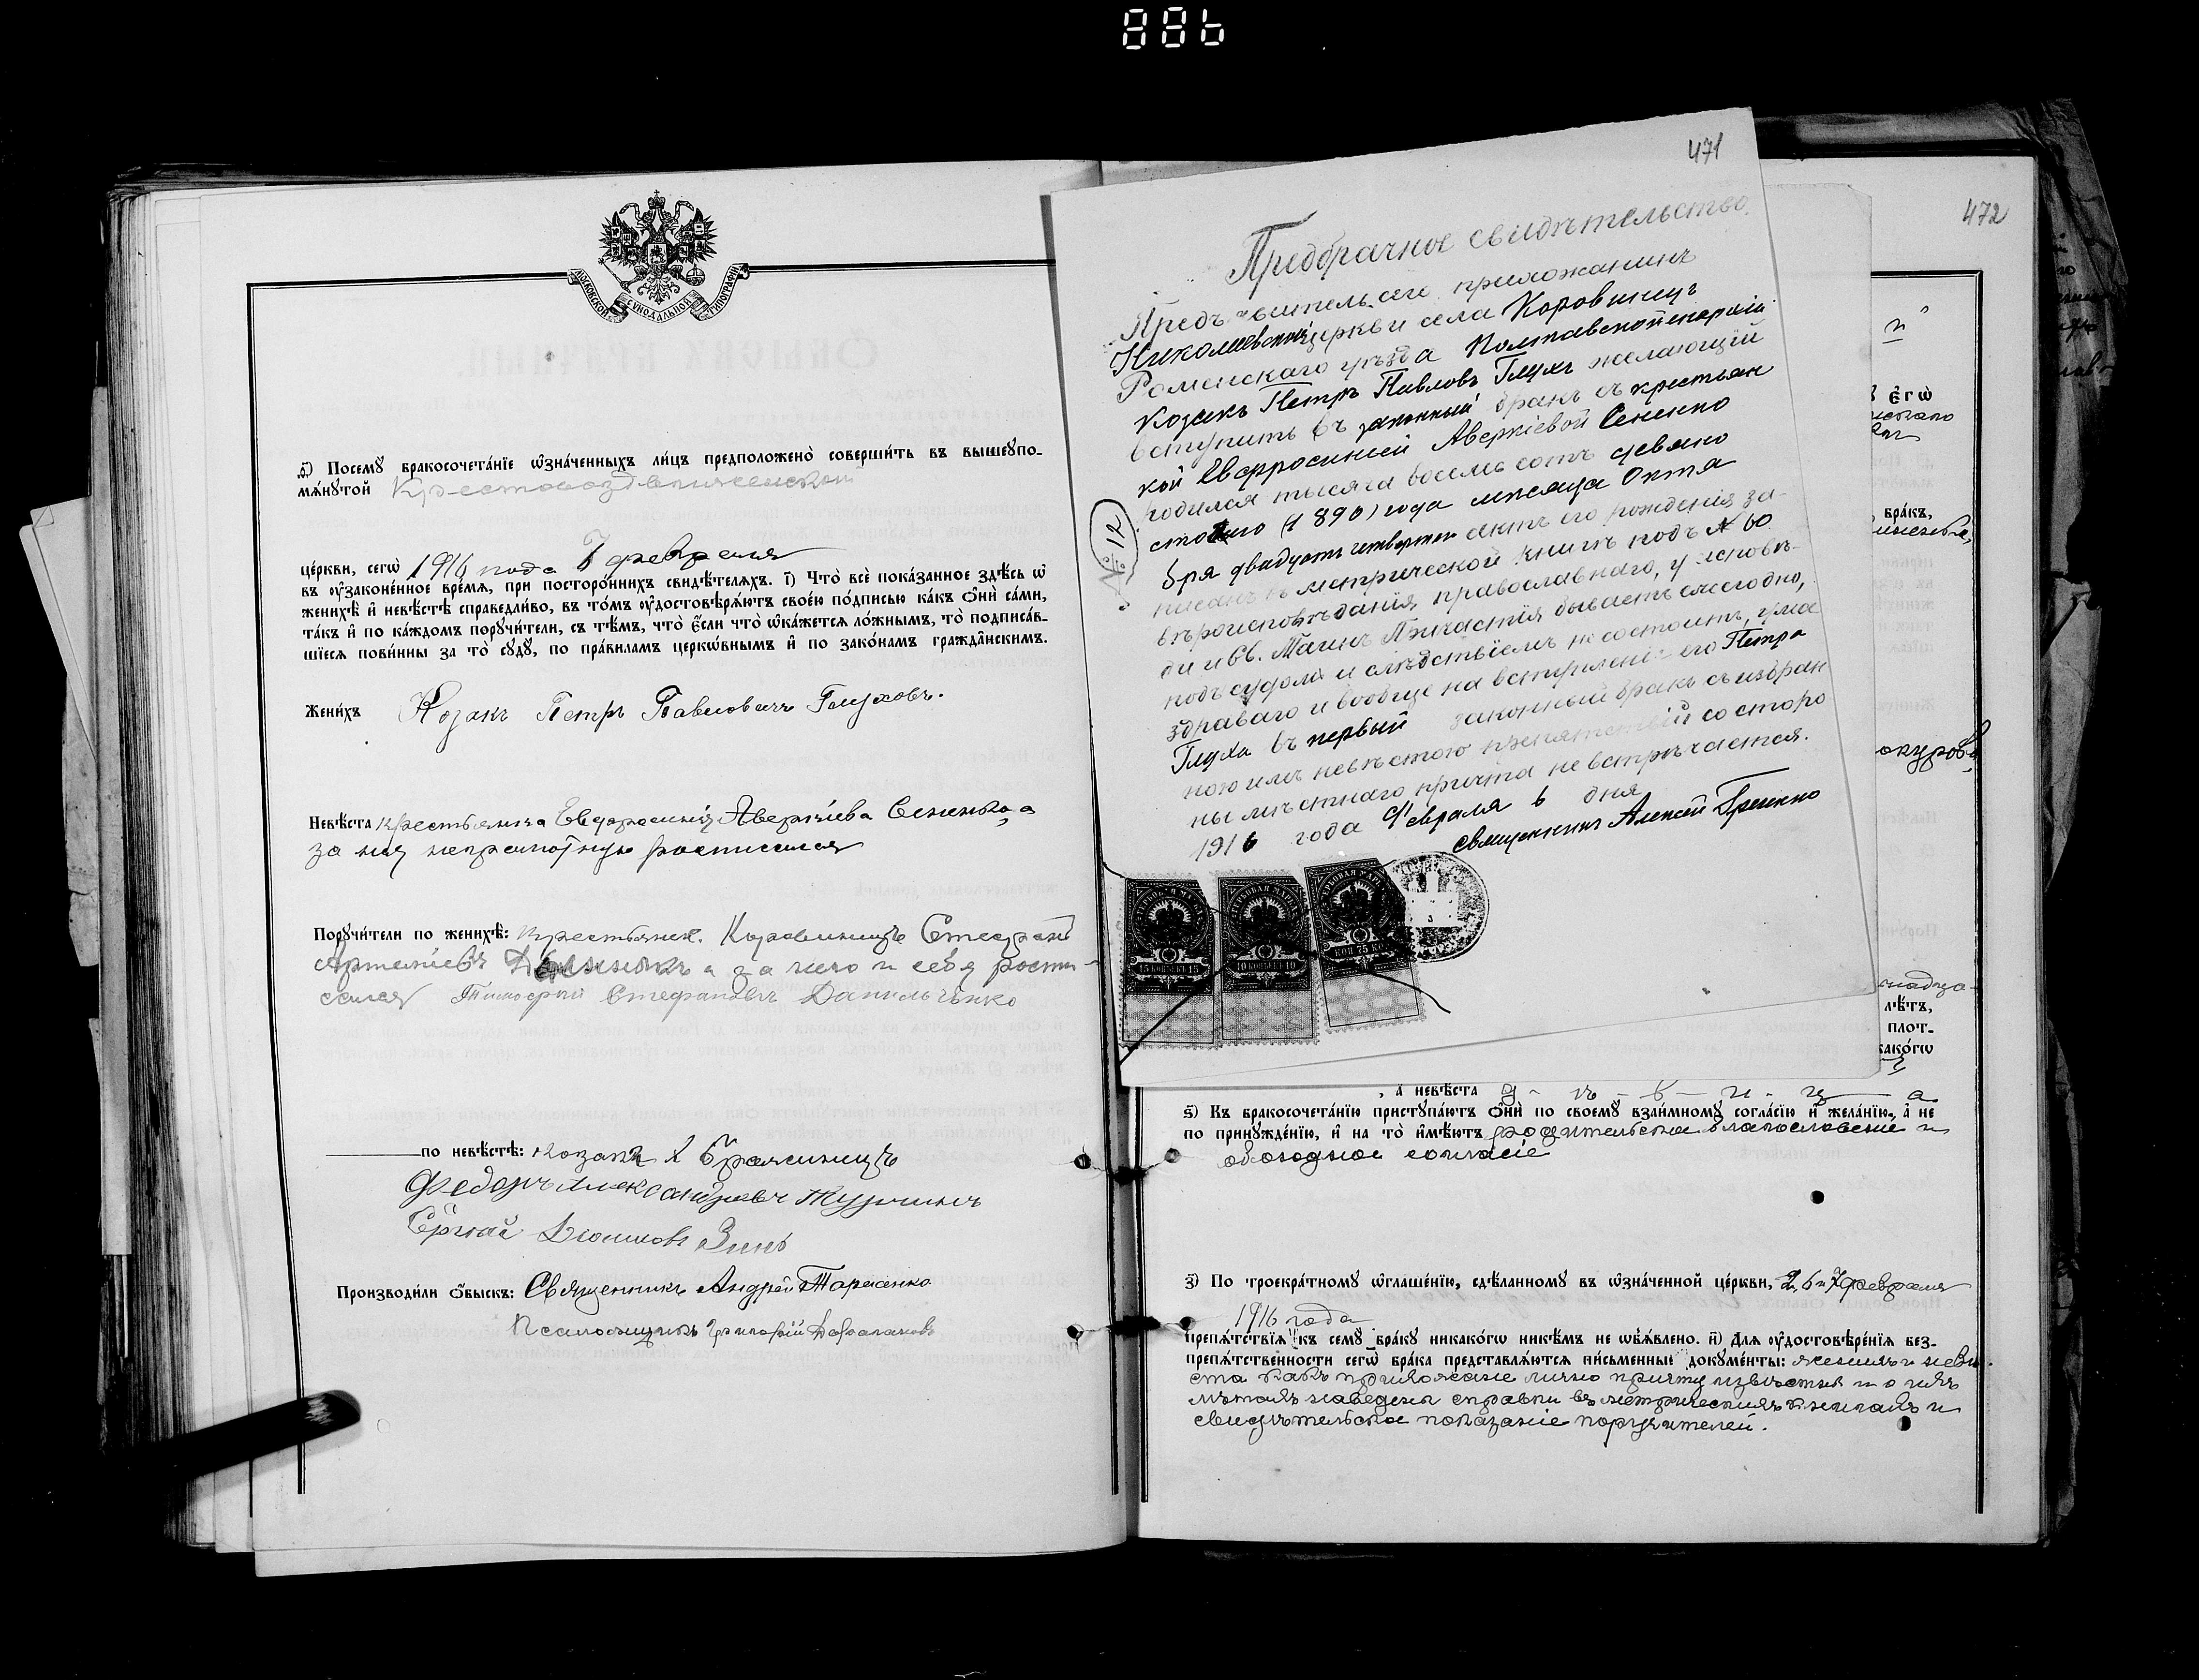 886
МОСКОВСКОЙ СѴНОДАЛЬНОЙ ТИПОГРАФІИ
ѳ҃) Посемꙋ бракосочета́нїе ѡ҆зна́ченныхъ ли́цъ предположено̀ соверши́ть въ вышеꙋпо-
мѧ́нꙋтой Крестовоздвиженской
це́ркви, сегѡ̀ 1916 года 7 февраля
въ ᲂу҆зако́ненное вре́мѧ, при посторо́ннихъ свидѣ́телѧхъ. і҃) Что̀ всѐ пока́занное здѣ́сь ѡ҆
женихѣ̀ и҆ невѣ́стѣ справедли́во, въ то́мъ ᲂу҆достовѣрѧ́ютъ свое́ю по́дписью ка́къ ѻ҆нѝ са́ми,
та́къ и҆ по ка́ждомъ порꙋчи́тели, съ тѣ́мъ, что̀ є҆́сли что̀ ѡ҆ка́жетсѧ ло́жнымъ, то̀ подписа́в-
шїесѧ пови́нны за то̀ сꙋдꙋ̀, по пра́виламъ церко́внымъ и҆ по зако́намъ гражда́нскимъ.
Жени́хъ Козакъ Петръ Павловичъ Глуховъ.
Невѣ́ста крестьянка Евфросинія Аверкіева Сененко, а
за нея неграмотную росписался
Порꙋчи́тели по женихѣ̀: крестьянск. Коровинецъ Стефанъ
Артеміевъ а за него и себя роспи-
сался Тимофей Стефановъ Данильченко
по невѣ́стѣ: козаки х
Федоръ Александровъ
Сергій Зинь
Производи́ли ѻ҆́быскъ: Священникъ Андрей Тарасенко
Псаломщикъ Григорій
471
Предбрачное свидѣтельство.
Предъявитель сего прихожанинъ
Николаевской церкви села Коровинецъ
Роменскаго уѣзда Полтавской епархіи
козакъ Петръ Павловъ Глухъ желающій
вступить въ законный бракъ съ крестьян
кой Евфросиніей Аверкіевой Сененко
родился тысяча восемь сотъ девяно
стого (1890) года мѣсяца Октя
бря двадцать четвертаго актъ его рожденія за-
писанъ въ метрической книгѣ подъ № 60
вѣроисповѣданія православнаго, у исповѣ-
ди и Св. Таинъ Причастія бываетъ ежегодно,
подъ судомъ и слѣдствіемъ не состоитъ, ума
здраваго и вообще на вступленіе его Петра
Глуха въ первый законный бракъ съ избран
ною имъ невѣстою препятствій со сторо
ны мѣстнаго причта не встрѣчается.
1916 года Февраля 6 дня
священникъ Алексѣй Гриенко
№ 12
ГЕРБОВАЯ МАРКА
15 КОПѢЕКЪ 15
ГЕРБОВАЯ МАРКА
10 КОПѢЕКЪ 10
ГЕРБОВАЯ МАРКА
КОП. 75 КОП.
472
и
є҆гѡ̀
бра́къ,
лѣ́тъ,
плот-
како́гѡ
, а҆ невѣ́ста д-ѣ-в-и-ц-а
ѕ҃) Къ бракосочета́нїю пристꙋпа́ютъ ѻ҆нѝ по своемꙋ̀ взаи́мномꙋ согла́сїю и҆ жела́нїю, а҆ не
по принꙋжде́нїю, и҆ на то̀ и҆мѣ́ютъ родительское благословеніе и
обоюдное согласіе
з҃) По троекра́тномꙋ ѡ҆глаше́нїю, сдѣ́ланномꙋ въ ѡ҆зна́ченной це́ркви, 2, 6 и 7 февраля
1916 года
препѧ́тствїѧ къ семꙋ̀ бра́кꙋ никако́гѡ никѣ́мъ не ѡ҆б̾ѧ́влено. и҃) Длѧ ᲂу҆достовѣре́нїѧ без-
препѧ́тственности сегѡ̀ бра́ка представлѧ́ютсѧ пи́сьменные докꙋме́нты: женихъ и невѣ-
ста какъ прихожане лично причту извѣстны и о ихъ
лѣтахъ наведены справки въ метрическихъ книгахъ и
свидѣтельское показаніе поручителей.